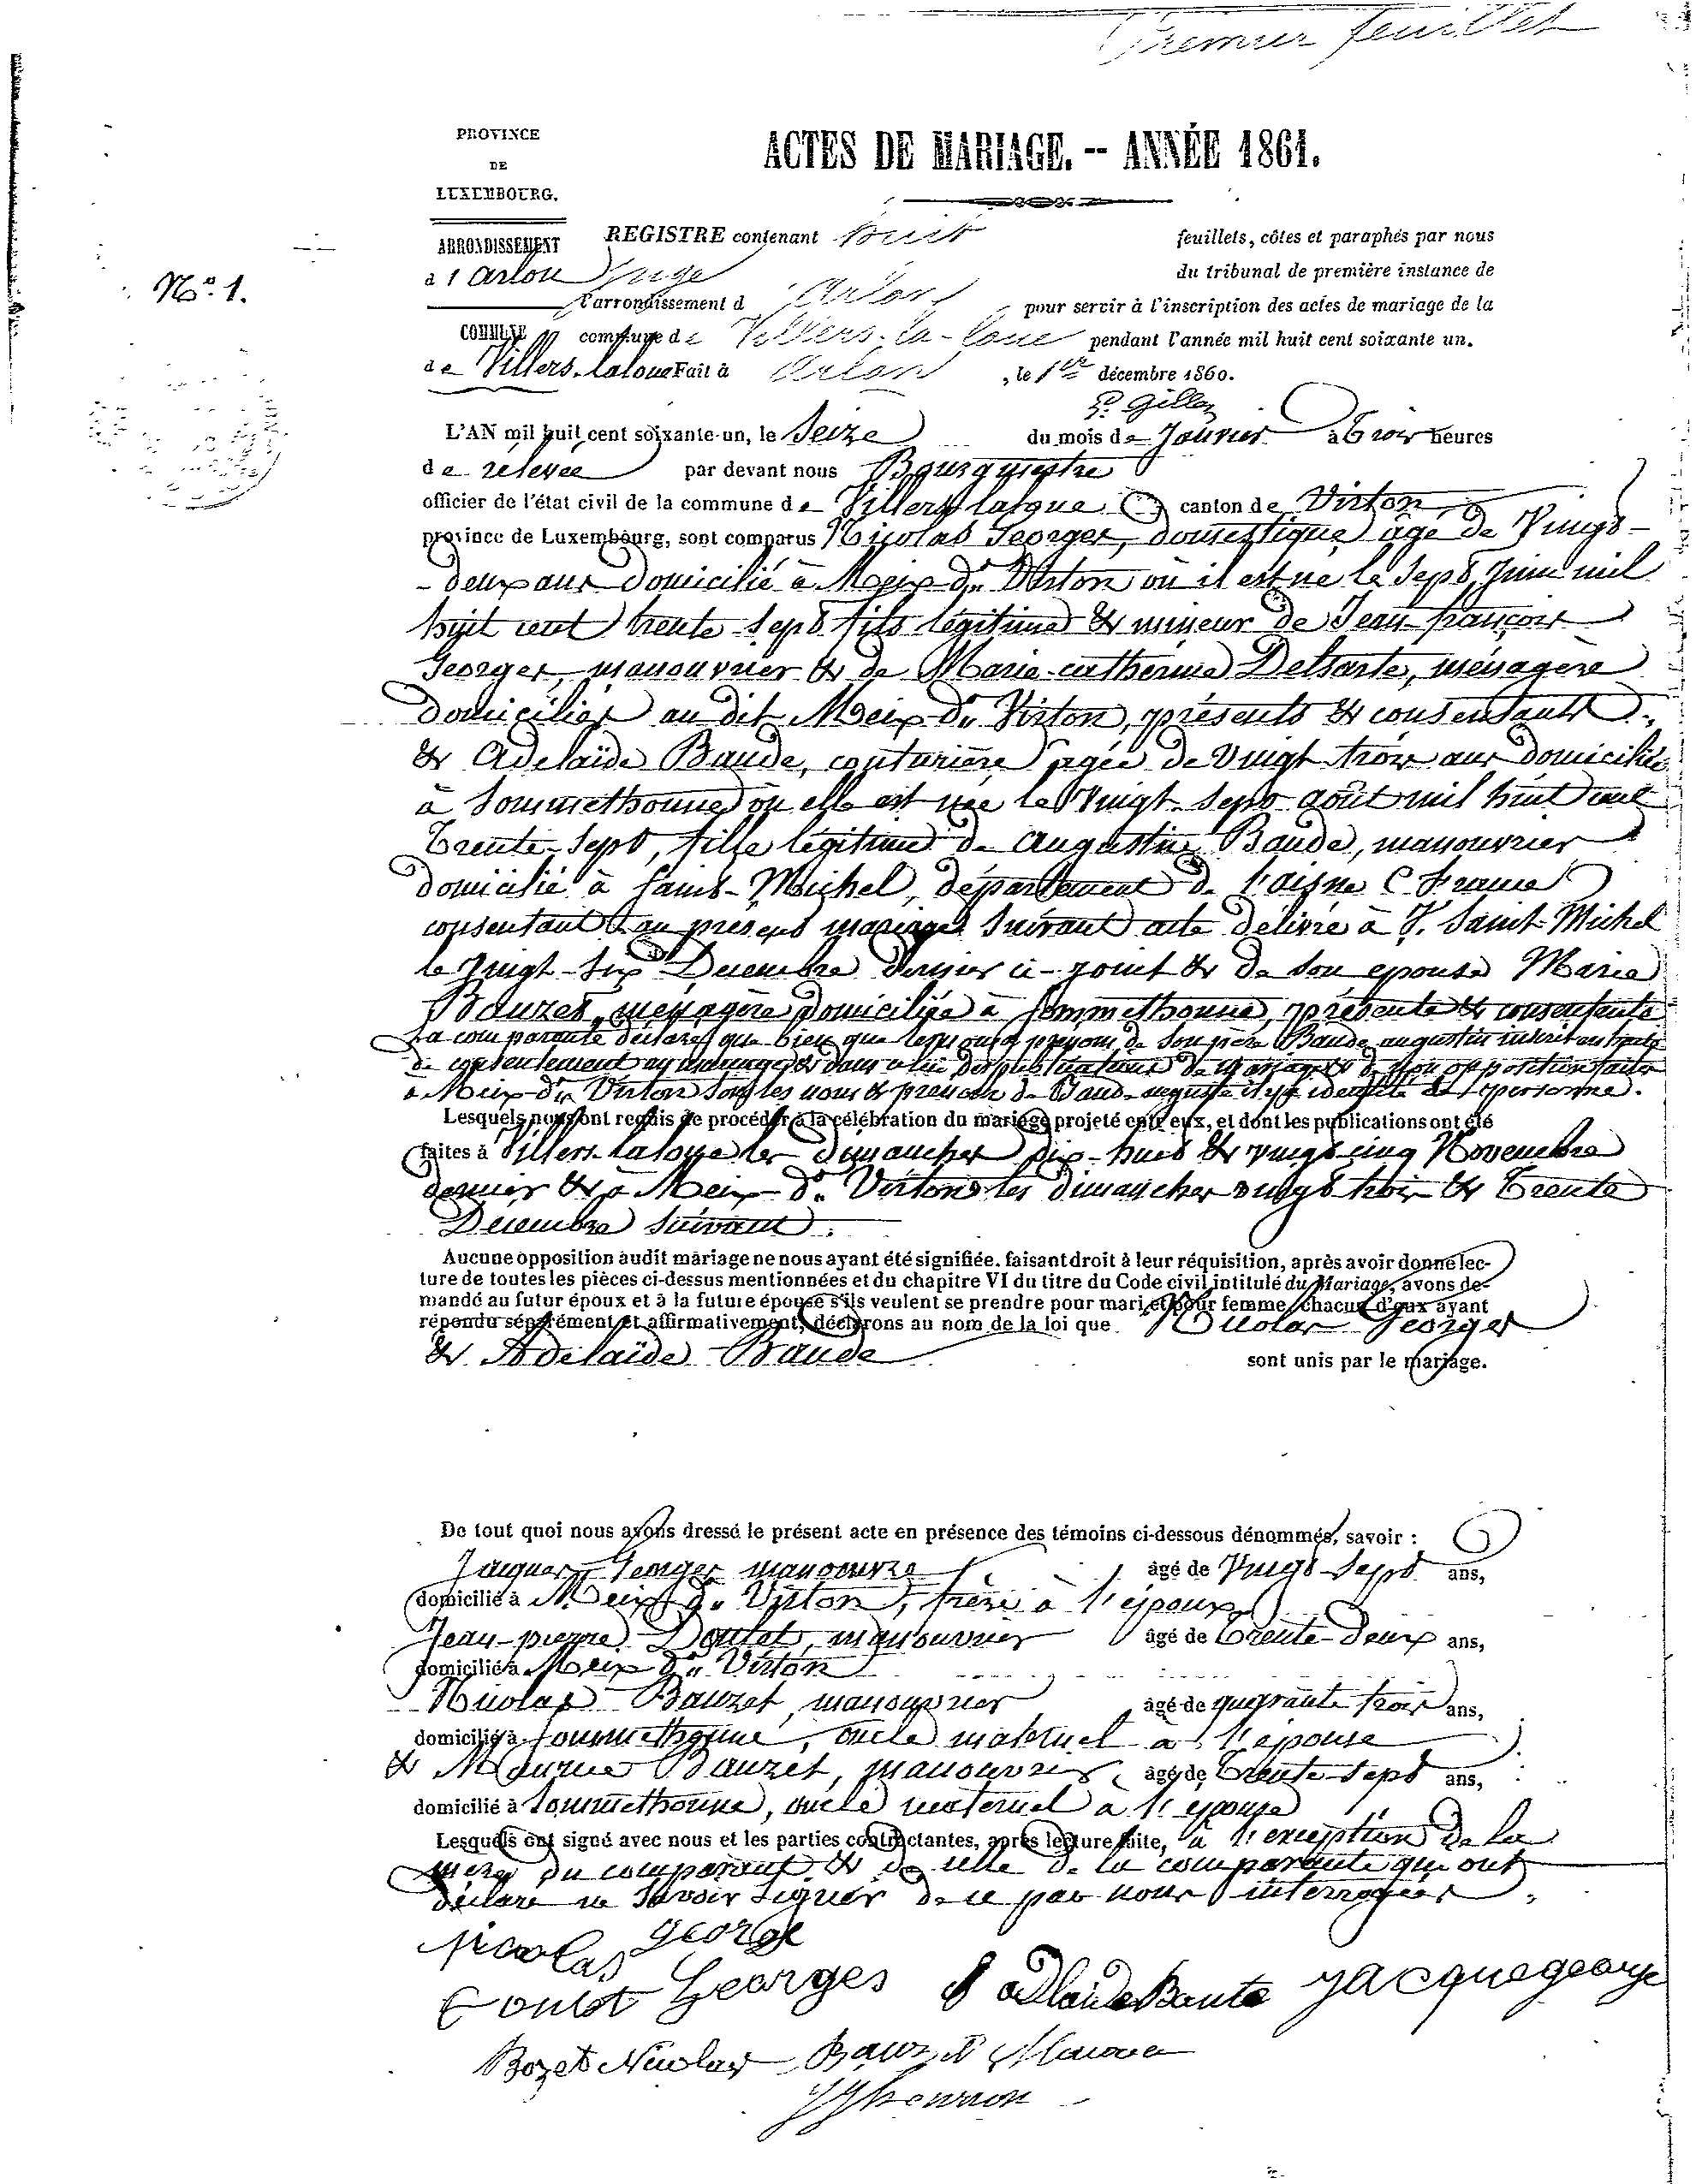 Premier feuillet
PROVINCE
DE
LUXEMBOURG.
ACTES DE MARIAGE. -- ANNÉE 1861.
ARRONDISSEMENT
d'Arlon
REGISTRE contenant huit feuillets, côtes et paraphés par nous
Juge du tribunal de première instance de
l'arrondissement d Arlon pour servir à l'inscription des actes de mariage de la
COMMUNE
commune de Villers-la-Loue pendant l'année mil huit cent soixante un.
de Villers-laloue
Fait à Arlon, le 1er décembre 1860.
N° 1.
L'AN mil huit cent soixante-un, le Seize du mois de Janvier à Trois heures
de relevée par devant nous Bourgmestre
officier de l'état civil de la commune de Villers laloue canton de Virton
province de Luxembourg, sont comparus Nicolas Georges, domestique, âgé de Vingt-
-deux ans domicilié à Meix dt Virton où il est né le Sept Juin mil
huit cent trente-sept fils légitime & mineur de Jean françois
Georges, manouvrier & de Marie-catherine Delsarte, ménagère
domiciliés au dit Meix-dt Virton, présents & consentants
& Adelaïde Baude, couturière agée de Vingt trois ans domiciliée
à Sommethonne où elle est née le Vingt-Sept août mil huit cent
Trente-Sept, fille légitime de Augustin Baude, manouvrier
domicilié à Saint-Michel, département de l'aisne (France)
consentant au présent mariage suivant acte délivré à St. Saint-Michel
le Vingt-Six Décembre dernier ci-joint & de son épouse Marie
Bauzet, ménagère domiciliée à Sommethonne, présente & consentente
La comparante déclare que bien que les noms & prénoms de son père Baude augustin
de consentement au mariage & dans celui des publications de mariage & de non opposition faites
à Meix-dt Virton sous les noms & prénoms de Baude auguste il y a identité de personne.
Lesquels nous ont requis de procéder à la célébration du mariage projeté entr'eux, et dont les publications ont été
faites à Villers-laloue les dimanches dix-huit & vingt-cinq Novembre
dernier & à Meix-dt Virton les dimanches vingt trois & Trente
Décembre suivant.
Aucune opposition audit mariage ne nous ayant été signifiée. faisant droit à leur réquisition, après avoir donné lec-
ture de toutes les pièces ci-dessus mentionnées et du chapitre VI du titre du Code civil intitulé du Mariage, avons de-
mandé au futur époux et à la future épouse s'ils veulent se prendre pour mari et pour femme, chacun d'eux ayant
répondu séparément et affirmativement, déclarons au nom de la loi que Nicolas Georges
& Adélaïde Baude sont unis par le mariage.
De tout quoi nous avons dressé le présent acte en présence des témoins ci-dessous dénommés, savoir :
Jacques Georges manouvre âgé de Vingt-Sept ans,
domicilié à Meix dt Virton, frère à l'époux
Jean-pierre Doulet, manouvrier âgé de Trente-deux ans,
domicilié à Meix dt Virton
Nicolas Bauzet, manouvrier âgé de quarante trois ans,
domicilié à Sommethonne, oncle maternel à l'épouse
& Maurice Bauzet, manouvrier, âgé de Trente-sept ans,
domicilié à Sommethonne, oncle maternel à l'épouse
Lesquels ont signé avec nous et les parties contractantes, après lecture faite, à l'exception de la
mère du comparant & de celle de la comparante qui ont
déclaré ne savoir signer de ce par nous interrogées.
Nicolas george
Georges adlaide Baute jacque george
Bozet Nicolas Bauzet